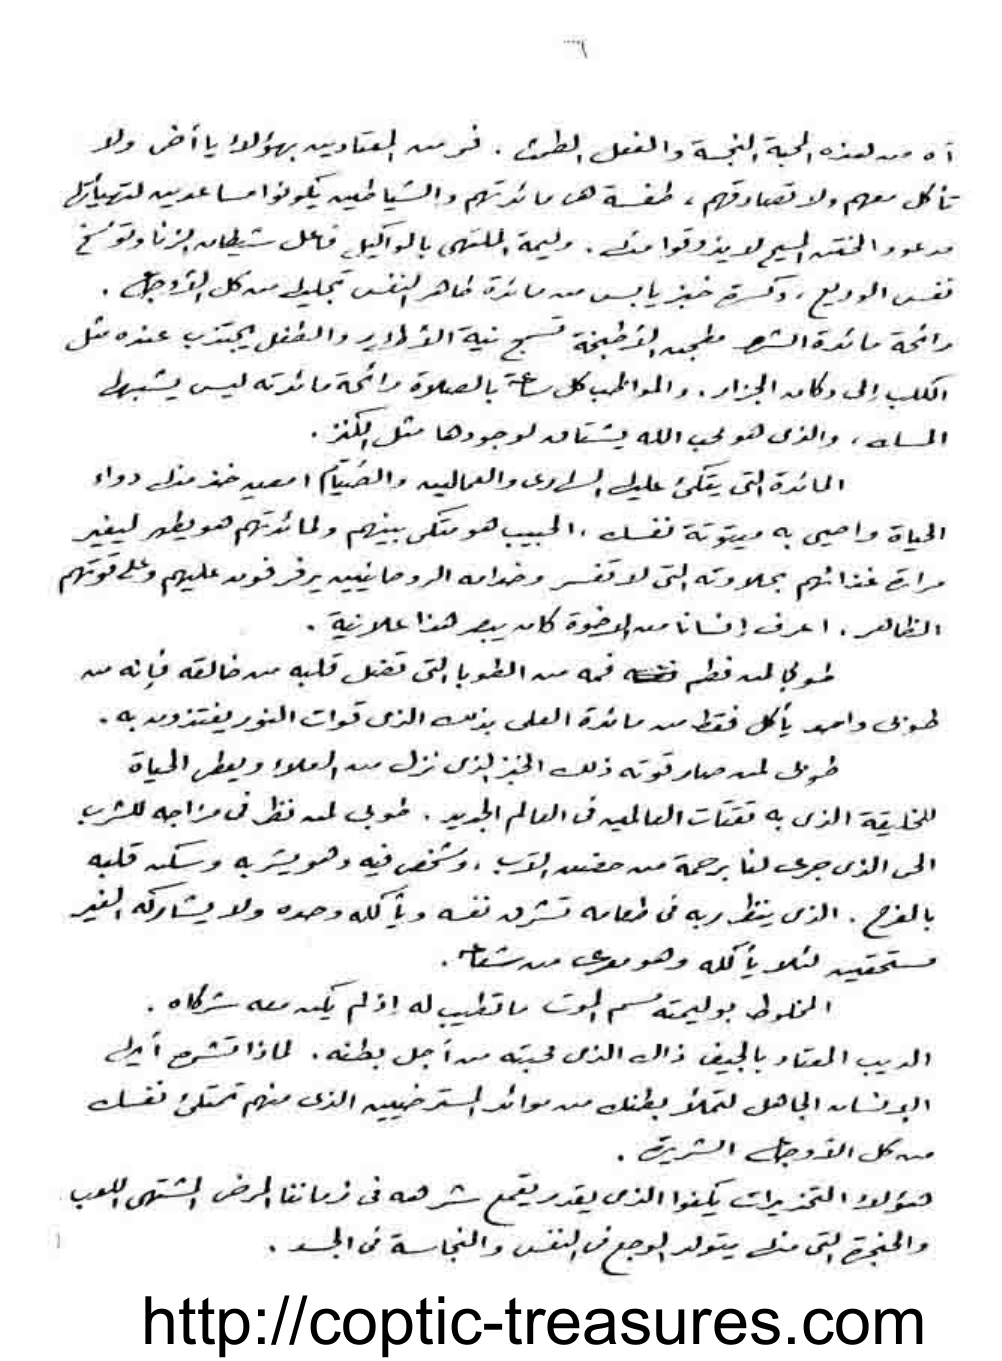 آه من هذه المحبة النجسة والفعل الطمث . فر من المعتادين بهؤلاء يا أخى ولا
تأكل معهم ولا تصادقهم ، طفسة هى مائدتهم والشياطين يكونوا مساعدين لتهيأتها
مدعوو الختن المسيح لا يذوقوا منها . وليمة الملتهى بالمواكيل فاعل شيطان الزنا وتوسخ
نفس الوديع ، وكسرة خبز يابس من مائدة طاهر النفس تجليها من كل الأوجاع .
رائحة مائدة الشره مطجن الأطبخة تسمج نية والطفل يجتذب عنده مثل
الكلب إلى دكان الجزار . والمواظب كل ساعة بالصلاة رائحة مائدته ليس يشبهها
المسك ، والذى هو محب الله يشتاق لوجودها مثل الكنز .
المائدة التى يتكئ عليها السهارى والعمالين والصُيّام امضى خذ منها دواء
الحياة واحيى به ميتوتة نفسك ، الحبيب هو متكى بينهم ولمائدتهم هو يطهر ليغير
مرارة غذائهم بحلاوته التى لا تفسر وخدامه الروحانيين يرفرفون عليهم وعلى قوتهم
الظاهر . اعرف إنسانا من الاخوة كان يبصر هذا علانية .
طوبى لمن فطم فمه من الطوبا التى تضل قلبه من خالقه فإنه من
طوبى واحد يأكل فقط من مائدة العلى بذلك الذى قوات النور يغتذون به .
طوبى لمن صار قوته ذلك الخبز الذى نزل من العلاء ويعطى الحياة
للخليقة الذى به تقتات العالمين فى العالم الجديد . طوبى لمن نظر فى مزاجه للشرب
الحى الذى جرى لنا برحمة من حضن الآب ، وشخص فيه وهو يشربه وسكن قلبه
بالفرح . الذى ينظر ربه فى طعامه تشرق نفسه ويأكله وحده ولا يشاركه الغير
مستحقين لئلا يأكله وهو معرى من شعاعه .
المخلوط بوليمته سم الموت ما تطيب له إذ لم يكن معه شركاه .
الديب المعتاد بالجيف ذاك الذى محبته من أجل بطنه . لماذا تشره أيها
الإنسان الجاهل لتملأ بطنك من موائد المسترخيين الذى منهم تمتلئ نفسك
من كل الأوجاع الشريرة .
هؤلاء التحذيرات يكفوا الذى يقدر يقمع شرهه فى زماننا المرض المشتهى اللعب
والحنجرة التى منها يتولد الوجع فى النفس والنجاسة فى الجسد .
http://coptic-treasures.com